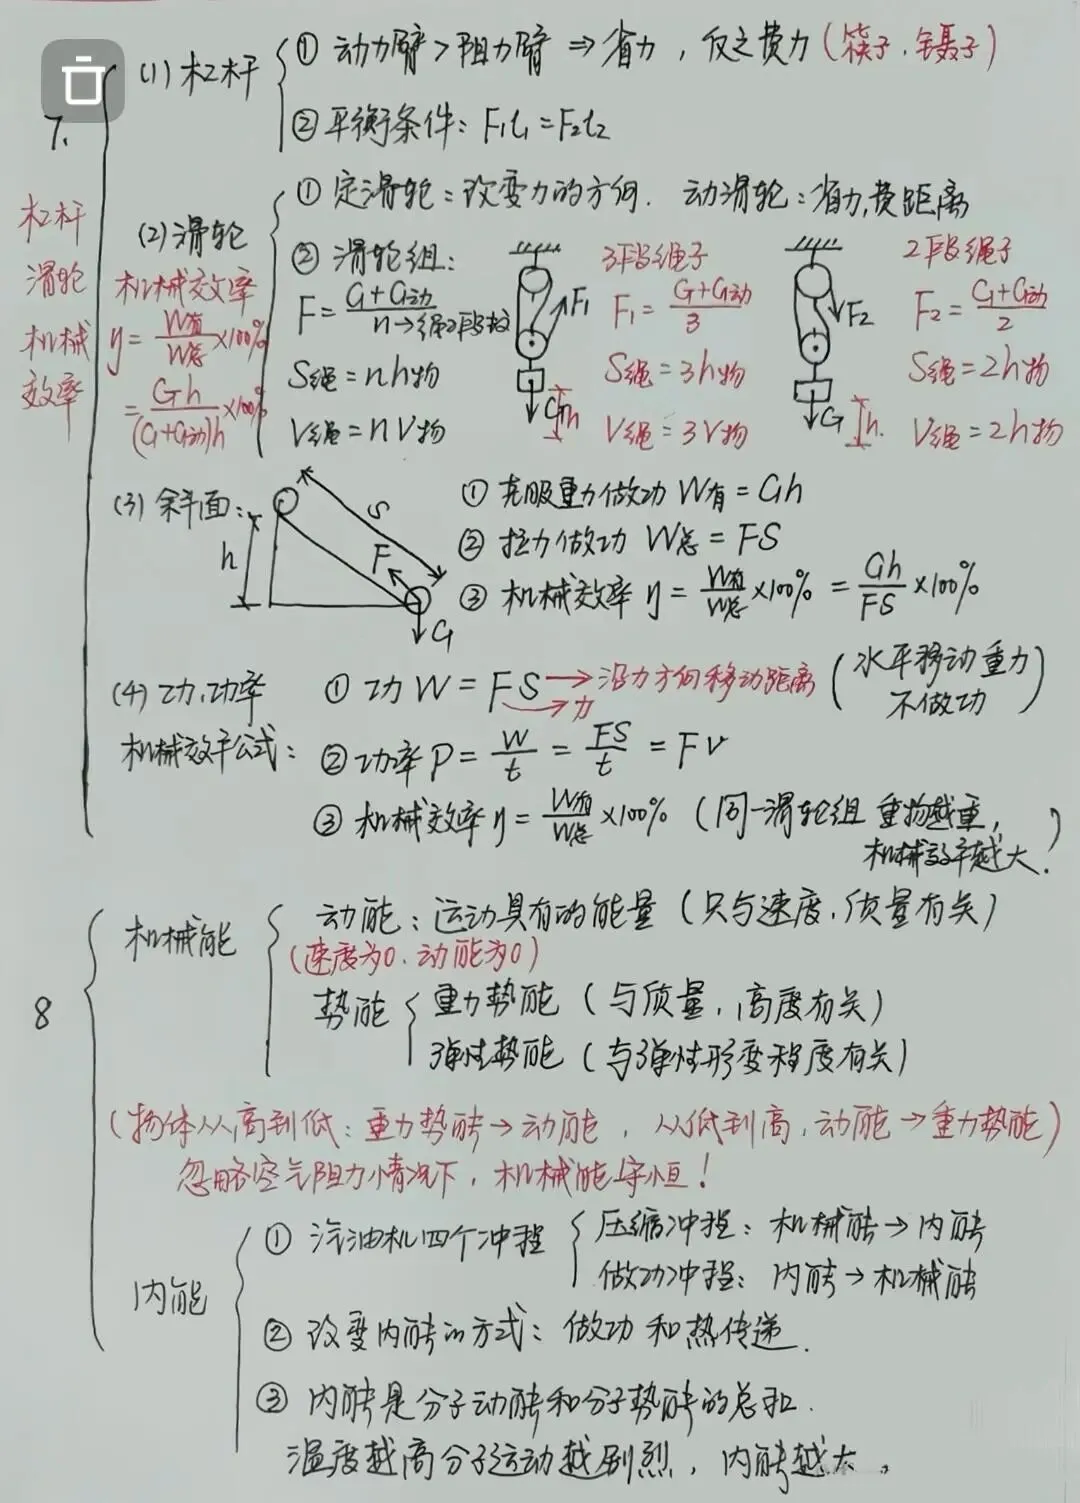 7.
杠杆
滑轮
机械
效率
(1) 杠杆
① 动力臂>阻力臂 ⇒ 省力，反之费力（筷子．镊子）
② 平衡条件：F₁l₁=F₂l₂
(2) 滑轮
① 定滑轮：改变力的方向．动滑轮：省力，费距离
机械效率
η=W有/W总×100%
=Gh/(G+G动)h×100%
② 滑轮组：
F=G+G动/n→绳子段数
S绳=nh物
V绳=nV物
F₁
G
h
3段绳子
F₁=G+G动/3
S绳=3h物
V绳=3V物
F₂
G
h
2段绳子
F₂=G+G动/2
S绳=2h物
V绳=2h物
(3) 斜面：
h
S
F
G
① 克服重力做功 W有=Gh
② 拉力做功 W总=FS
③ 机械效率 η=W有/W总×100%=Gh/FS×100%
(4) 功，功率
机械效率公式：
① 功 W=FS→沿力方向移动距离（水平移动重力不做功）
→力
② 功率 P=W/t=FS/t=FV
③ 机械效率 η=W有/W总×100%（同一滑轮组 重物越重，
机械效率越大．）
8
机械能
动能：运动具有的能量（只与速度，质量有关）
（速度为0．动能为0）
势能
重力势能（与质量，高度有关）
弹性势能（与弹性形变程度有关）
（物体从高到低：重力势能→动能，从低到高，动能→重力势能）
忽略空气阻力情况下，机械能守恒！
内能
① 汽油机四个冲程
压缩冲程：机械能→内能
做功冲程：内能→机械能
② 改变内能的方式：做功和热传递．
③ 内能是分子动能和分子势能的总和．
温度越高分子运动越剧烈，内能越大．